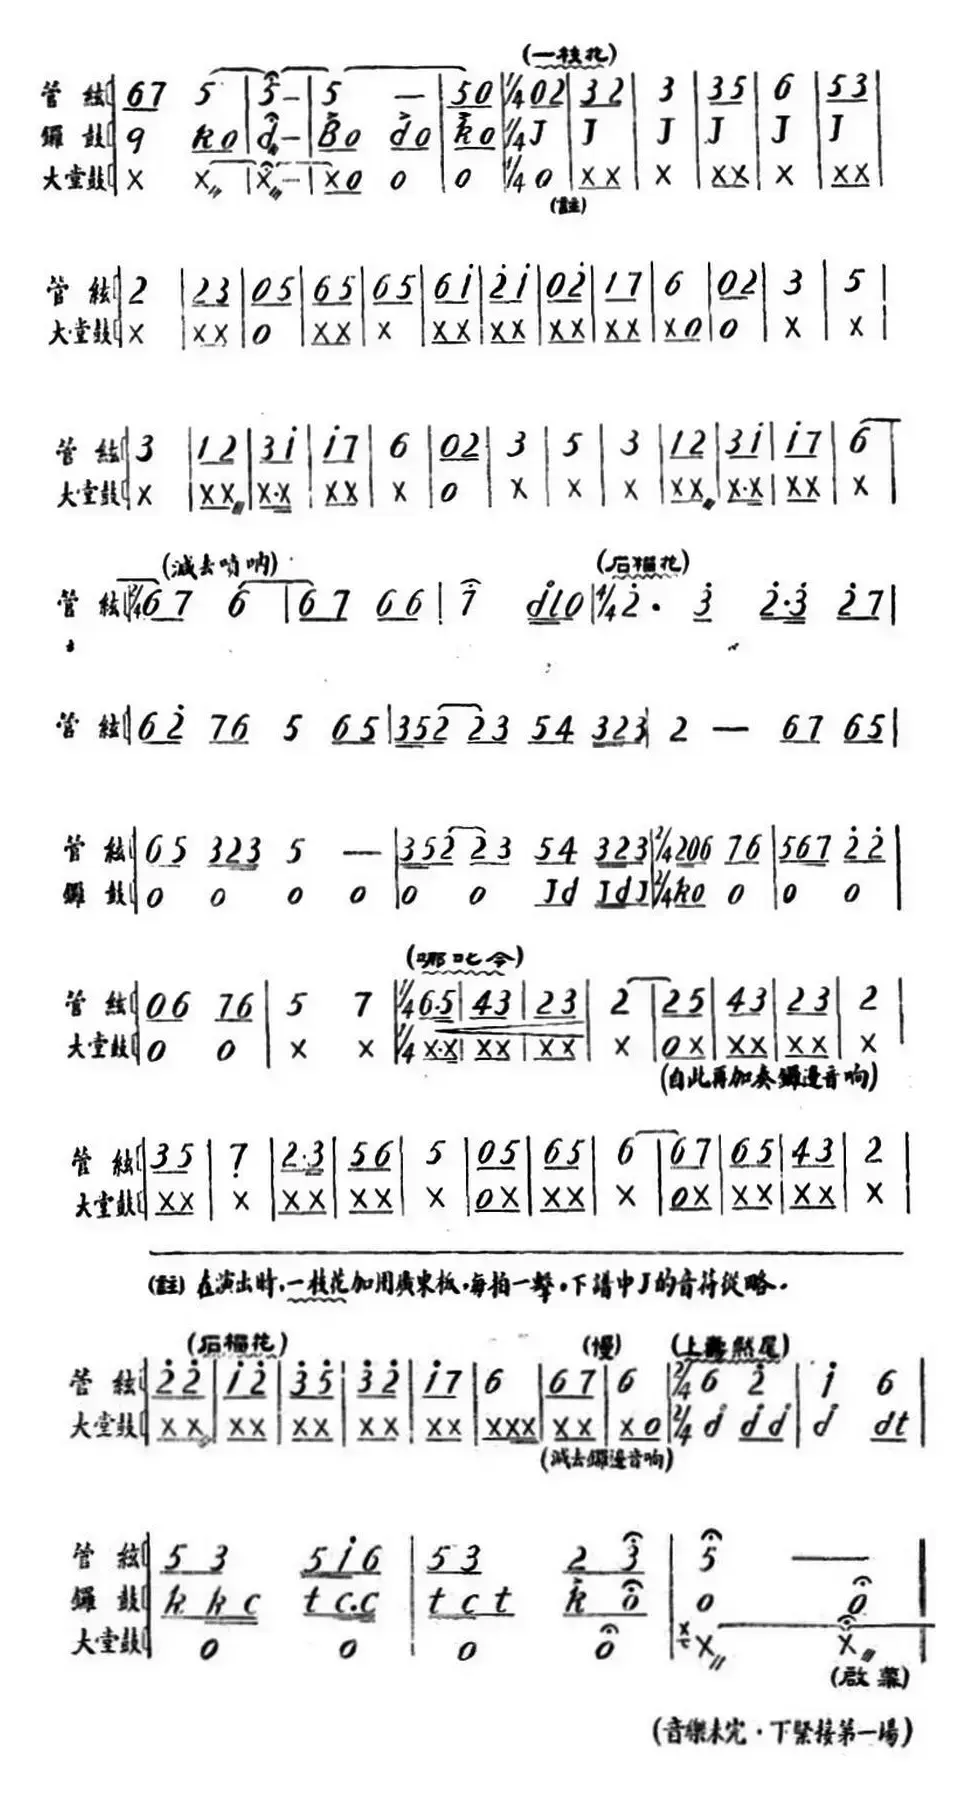 (一枝花)
管絃 67 5 | 5 – | 5 — 50 | 1/4 02 | 32 | 3 | 35 | 6 | 53 |
鑼鼓 9 ko | d – | Bo do ko | 1/4 J | J | J | J | J | J |
大堂鼓 X X | X – | XO O O | 1/4 O | XX | X | XX | X | XX |
(註)
管絃 2 | 23 | 05 | 65 | 65 | 6i | 2i | 02 | 17 | 6 | 02 | 3 | 5 |
大堂鼓 X | XX | O | XX | X | XX | XX | XX | XX | XO | O | X | X |
管絃 3 | 12 | 3i | i7 | 6 | 02 | 3 | 5 | 3 | 12 | 3i | i7 | 6 |
大堂鼓 X | XX | X·X | XX | X | O | X | X | X | XX | X·X | XX | X |
(減去嗩吶) (石榴花)
管絃 2/4 67 6 | 67 66 | 7 dlo | 4/4 2· 3 2·3 27 |
管絃 62 76 5 65 | 352 23 54 323 | 2 — 67 65 |
管絃 65 323 5 — | 352 23 54 323 | 2/4 206 76 | 567 22 |
鑼鼓 O O O O | O O Jd JdJ | 2/4 ko O | O O |
(哪吒令)
管絃 06 76 | 5 7 | 1/4 6·5 | 43 | 23 | 2 | 25 | 43 | 23 | 2 |
大堂鼓 O O | X X | 1/4 X·X | XX | XX | X | OX | XX | XX | X |
(自此再加奏鑼邊音响)
管絃 35 | 7 | 2·3 | 56 | 5 | 05 | 65 | 6 | 67 | 65 | 43 | 2 |
大堂鼓 XX | X | XX | XX | X | OX | XX | X | OX | XX | XX | X |
(註) 在演出时,一枝花加用廣東板,每拍一擊,下譜中J的音符從略.
(石榴花) (慢) (上壽煞尾)
管絃 22 | i2 | 35 | 32 | i7 | 6 | 67 | 6 | 2/4 6 2 | i 6 |
大堂鼓 XX | XX | XX | XX | XX | XXX | XX | XO | 2/4 d dd | d dt |
(減去鑼邊音响)
管絃 53 5i6 | 53 23 | 5 — |
鑼鼓 kkc tc.c | tct ko | O O |
大堂鼓 O O | O O | X X |
(啟幕)
(音樂未完·下緊接第一場)